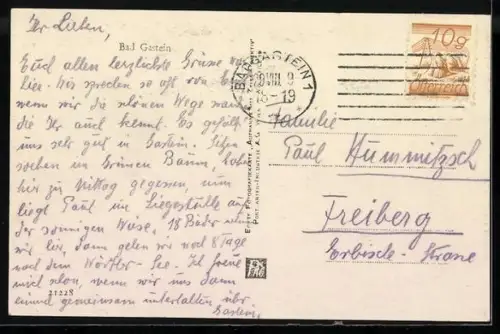 Ihr Lieben,
Bad Gastein
Euch allen herzlichste Grüße von
hier. Wir sprechen so oft von Euch
wenn wir die schönen Wege
die Ihr auch kennt. Es gefällt
uns sehr gut in Gastein. Sitzen
soeben im Grünen Baum, haben
hier zu Mittag gegessen, nun
liegt Paul im Liegestuhle an
der sonnigen Wiese, 18 Bäder
wir hier, dann gehen wir noch 8 Tage
nach dem Wörther-See. Ich freue
mich schon, wenn wir uns dann
einmal gemeinsam unterhalten über
Gastein.
21228
BADGASTEIN 1
VIII 9
18-19
10g
Österreich
Familie
Paul Hummitzsch
Freiberg
Erbische-Strasse